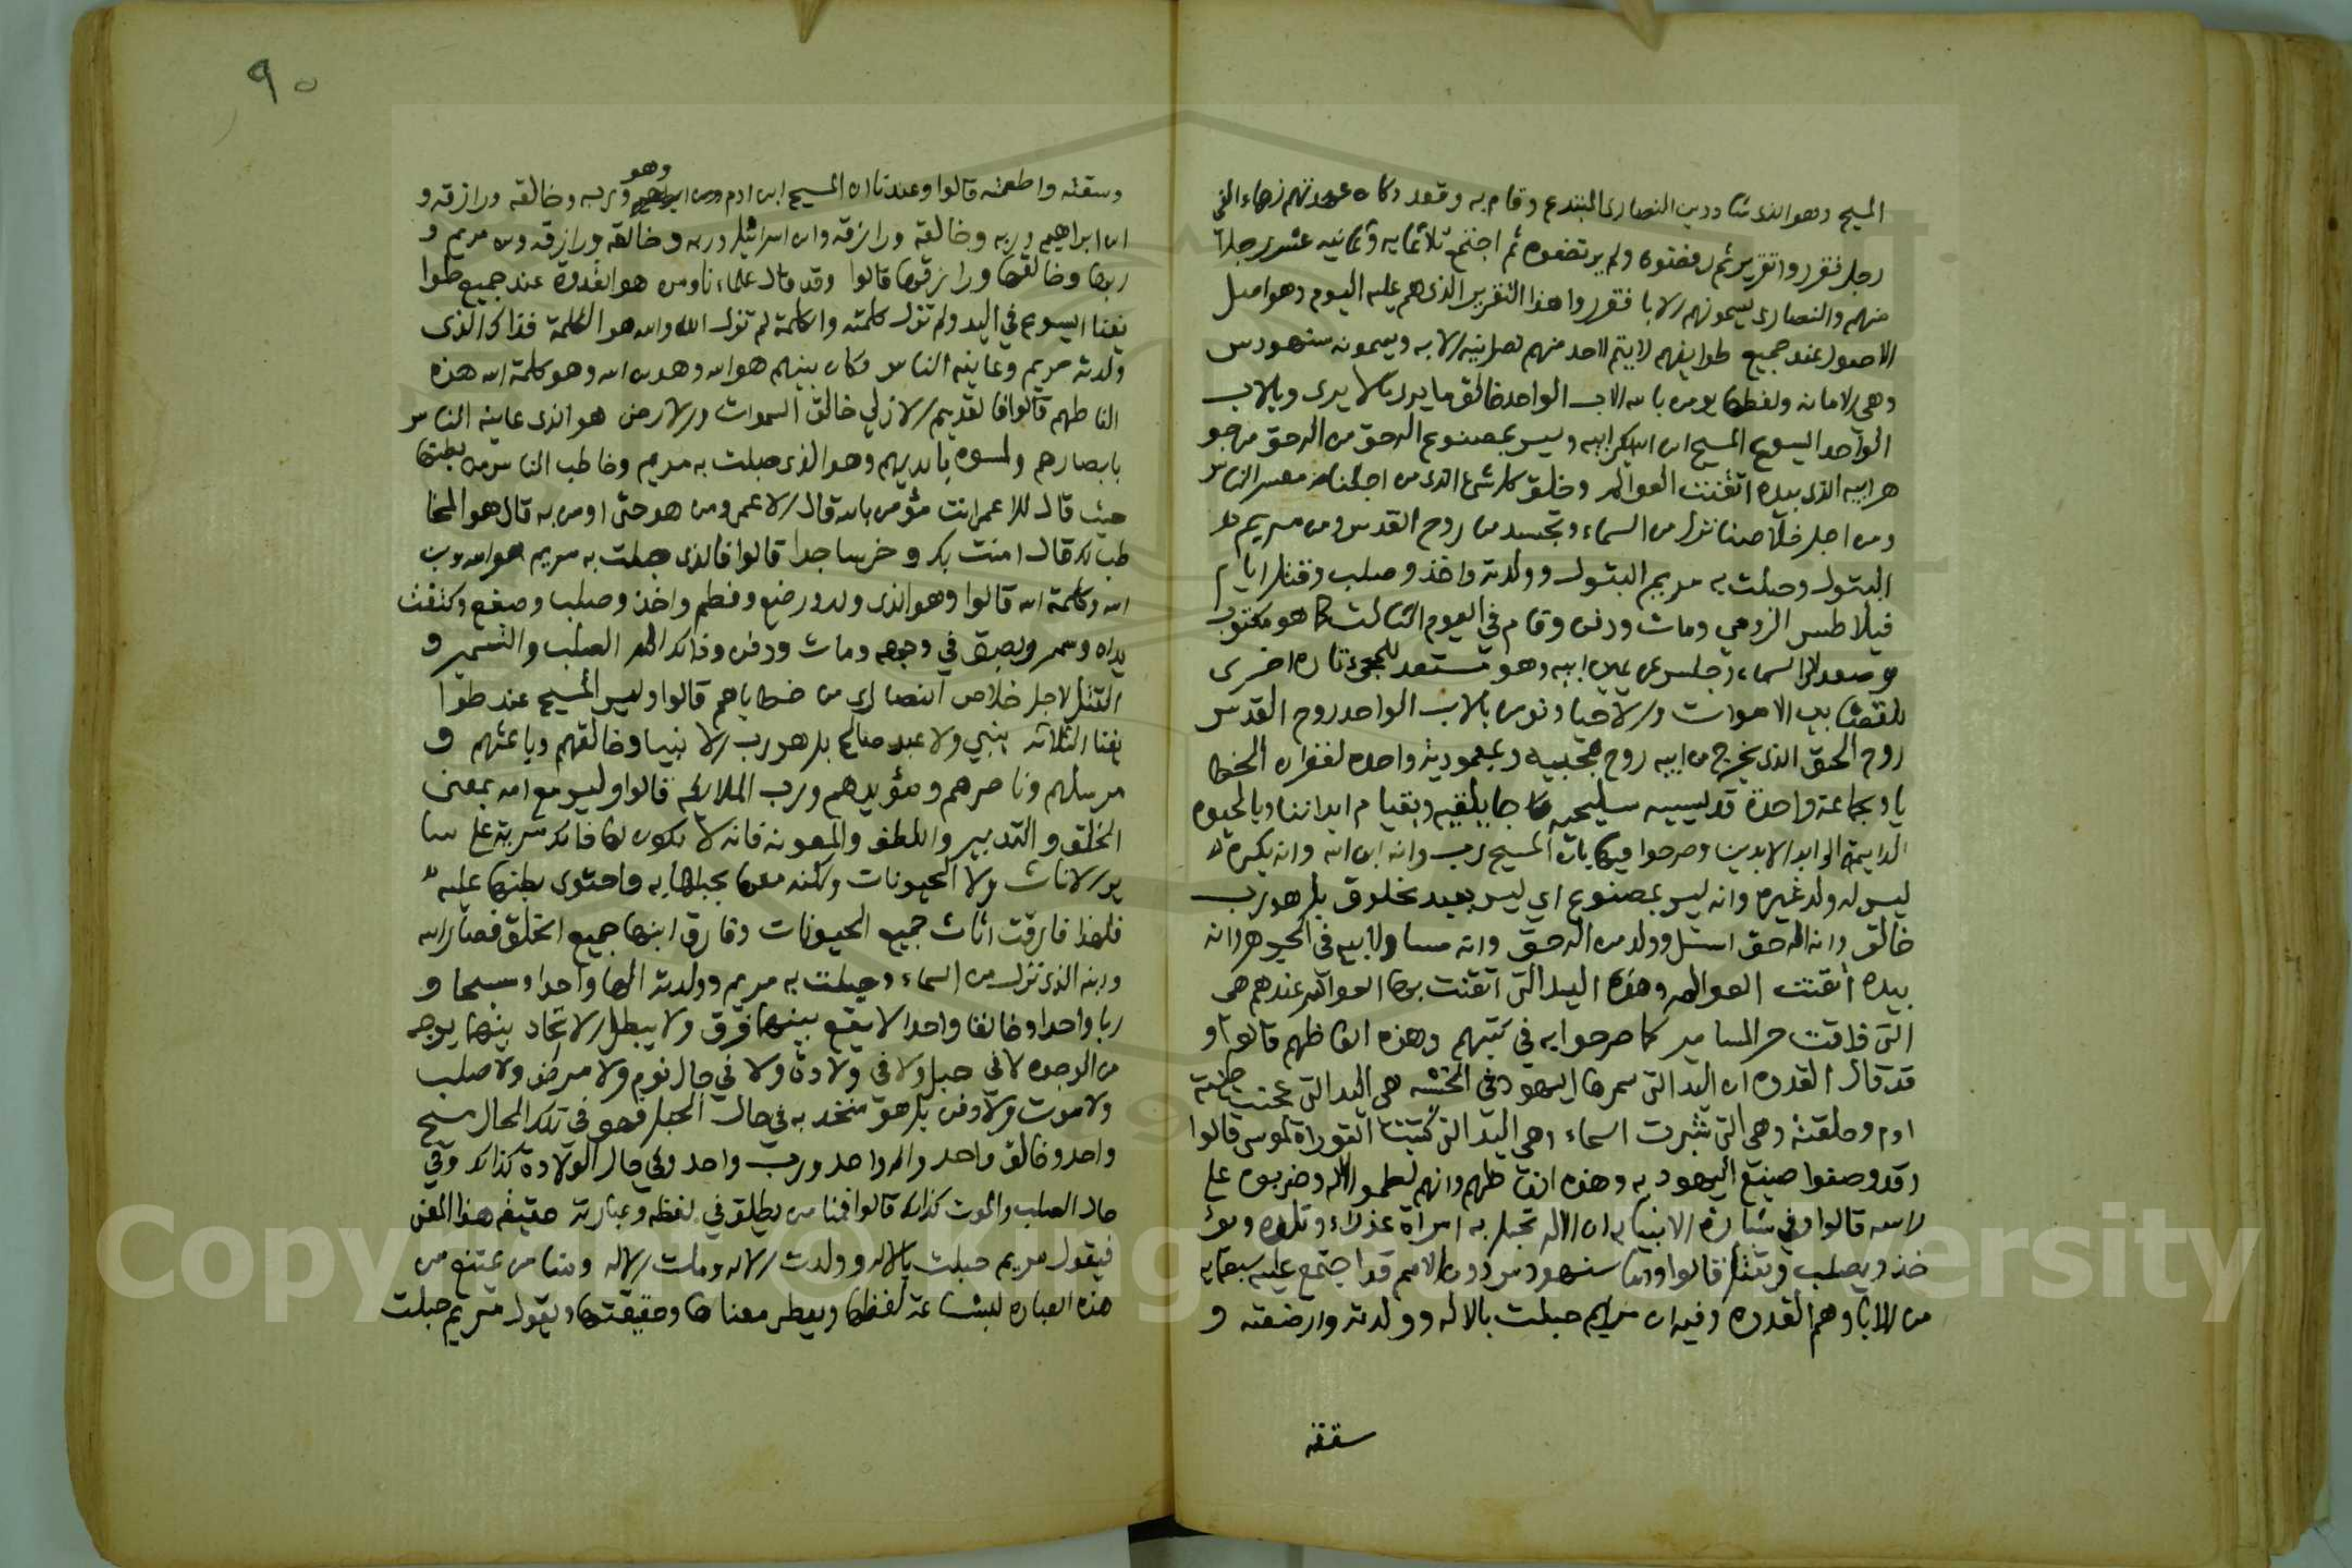 المسيح وهو الذى شاد دين النصارى المبتدع وقام به وقعد وكان عدتهم زهاء الفى
رجل فقرروا تقريرا ثم رفضوه ولم يرتضوه ثم اجتمع ثلاثمايه وثمانيه عشر رجلا
منهم والنصارى يسمونهم الابا فقرروا هذا التقرير الذى هم عليه اليوم وهو اصل
الاصول عند جميع طوايفهم لا يتم لاحد منهم نصرانيه الا به ويسمونه سنهودس
وهي الامانه ولفظها نومن بالله الاب الواحد خالق ما يرى وما لا يرى وبالرب
الواحد اليسوع المسيح ابن الله بكر ابيه وليس بمصنوع اله حق من اله حق من جو
هر ابيه الذى بيده اتقنت العوالم وخلق كل شئ الذى من اجلنا معشر الناس
ومن اجل خلاصنا نزل من السماء وتجسد من روح القدس ومن مريم
البتول وحبلت به مريم البتول وولدته واخذ وصلب وقتل ايام
فيلاطس الرومي ومات ودفن وقام في اليوم الثالث كما هو مكتوب
وصعد الى السماء وجلس عن يمين ابيه وهو مستعد للمجئ تارة اخرى
للقضا بين الاموات والاحيا ونومن بالرب الواحد روح القدس
روح الحق الذى يخرج من ابيه روح محييه وبمعمودية واحده لغفران الخطا
يا وبجماعة واحدة قديسيه سليحيه جاثليقيه وبقيام ابداننا وبالحيوه
الدايمة الى ابد الابدين وصرحوا فيها بان المسيح رب وانه ابن الله وانه بكره
ليس له ولد غيره وانه ليس بمصنوع اي ليس بعبد مخلوق بل هو رب
خالق وانه اله حق استل وولد من اله حق وانه مساو لابيه في الجوهر وانه
بيده اتقنت العوالم وهذه اليد التى اتقنت بها العوالم عندهم هى
التى ذاقت حر المسامير كما صرحوا به في كتبهم وهذه الفاظهم قالوا و
قد قال القدوه ان اليد التى سمرها اليهود في الخشبه هى اليد التى عجنت طينة
ادم وخلقته وهى التى شبرت السماء وهى اليد التى كتبت التوراة لموسى قالوا
وقد وصفوا صنيع اليهود به وهذه الفاظهم وانهم لطموا الاله وضربوه على
راسه قالوا وفي بشارة الانبيا به ان الاله تحبل به امراة عذراء وتلده ويؤ
خذ ويصلب ويقتل قالوا واما سنهودس دون الامم قد اجتمع عليه سبعمايه
من الابا وهم القدوه وفيه ان مريم حبلت بالاله وولدته وارضعته و
سقته
٩٠
وسقته واطعمته قالوا وعندنا ان المسيح ابن ادم وهو ربه وخالقه ورازقه و
ابن ابراهيم وربه وخالقه ورازقه وابن اسرائيل وربه وخالقه ورازقه وبن مريم و
ربها وخالقها ورازقها قالوا وقد قال علماءنا ومن هو القدوة عند جميع طوا
يفنا اليسوع في البد ولم تزل كلمته والكلمة لم تزل الله والله هو الكلمة فذاك الذى
ولدته مريم وعاينه الناس وكان بينهم هو الله وهو ابن الله وهو كلمة الله هذه
الفاظهم قالوا فالقديم الازلي خالق السموات والارض هو الذى عاينه الناس
بابصارهم ولمسوه بايديهم وهو الذى حبلت به مريم وخاطب الناس من بطنها
حيث قال للاعمى انت مؤمن بالله قال الاعمى ومن هو حتى اومن به قال هو المخا
طب لك قال امنت بك وخر ساجدا قالوا فالذى حبلت به مريم هو الله وبن
الله وكلمة الله قالوا وهو الذى ولد ورضع وفطم واخذ وصلب وصفع وكتفت
يداه وسمر وبصق في وجهه ومات ودفن وذاق الم الصلب والتسمير و
القتل لاجل خلاص النصارى من خطاياهم قالوا وليس المسيح عند طوا
يفنا الثلاثه بنبي ولا عبد صالح بل هو رب الانبيا وخالقهم وباعثهم و
مرسلهم وناصرهم ومؤيدهم ورب الملائكه قالوا وليس مع امه بمعنى
الخلق والتدبير واللطف والمعونه فانه لا يكون لها فانك مزية على سا
ير الاناث ولا الحيونات ولكنه معها بحبلها به واحتوى بطنها عليه
فلهذا فارقت اناث جميع الحيونات وفارق ابنها جميع الخلق فصار الله
وابنه الذى نزل من السماء وحبلت به مريم وولدته الها واحدا ومسيحا و
ربا واحدا وخالقا واحدا لا يقع بينهما فرق ولا يبطل الاتحاد بينهما بوجه
من الوجوه لا في حبل ولا في ولادة ولا في حال نوم ولا مرض ولا صلب
ولا موت ولا دفن بل هو متحد به في حال الحبل فهو في تلك الحال مسيح
واحد وخالق واحد واله واحد ورب واحد وفي حال الولادة كذلك وفي
حال الصلب والموت كذلك قالوا فمنا من يطلق في لفظه وعبارته حقيقة هذا المعنى
فيقول مريم حبلت بالاله وولدت الاله ومات الاله ومنا من يمتنع من
هذه العباره لبشاعة لفظها ويعطى معناها وحقيقتها ويقول مريم حبلت
Copyright © King Saud University